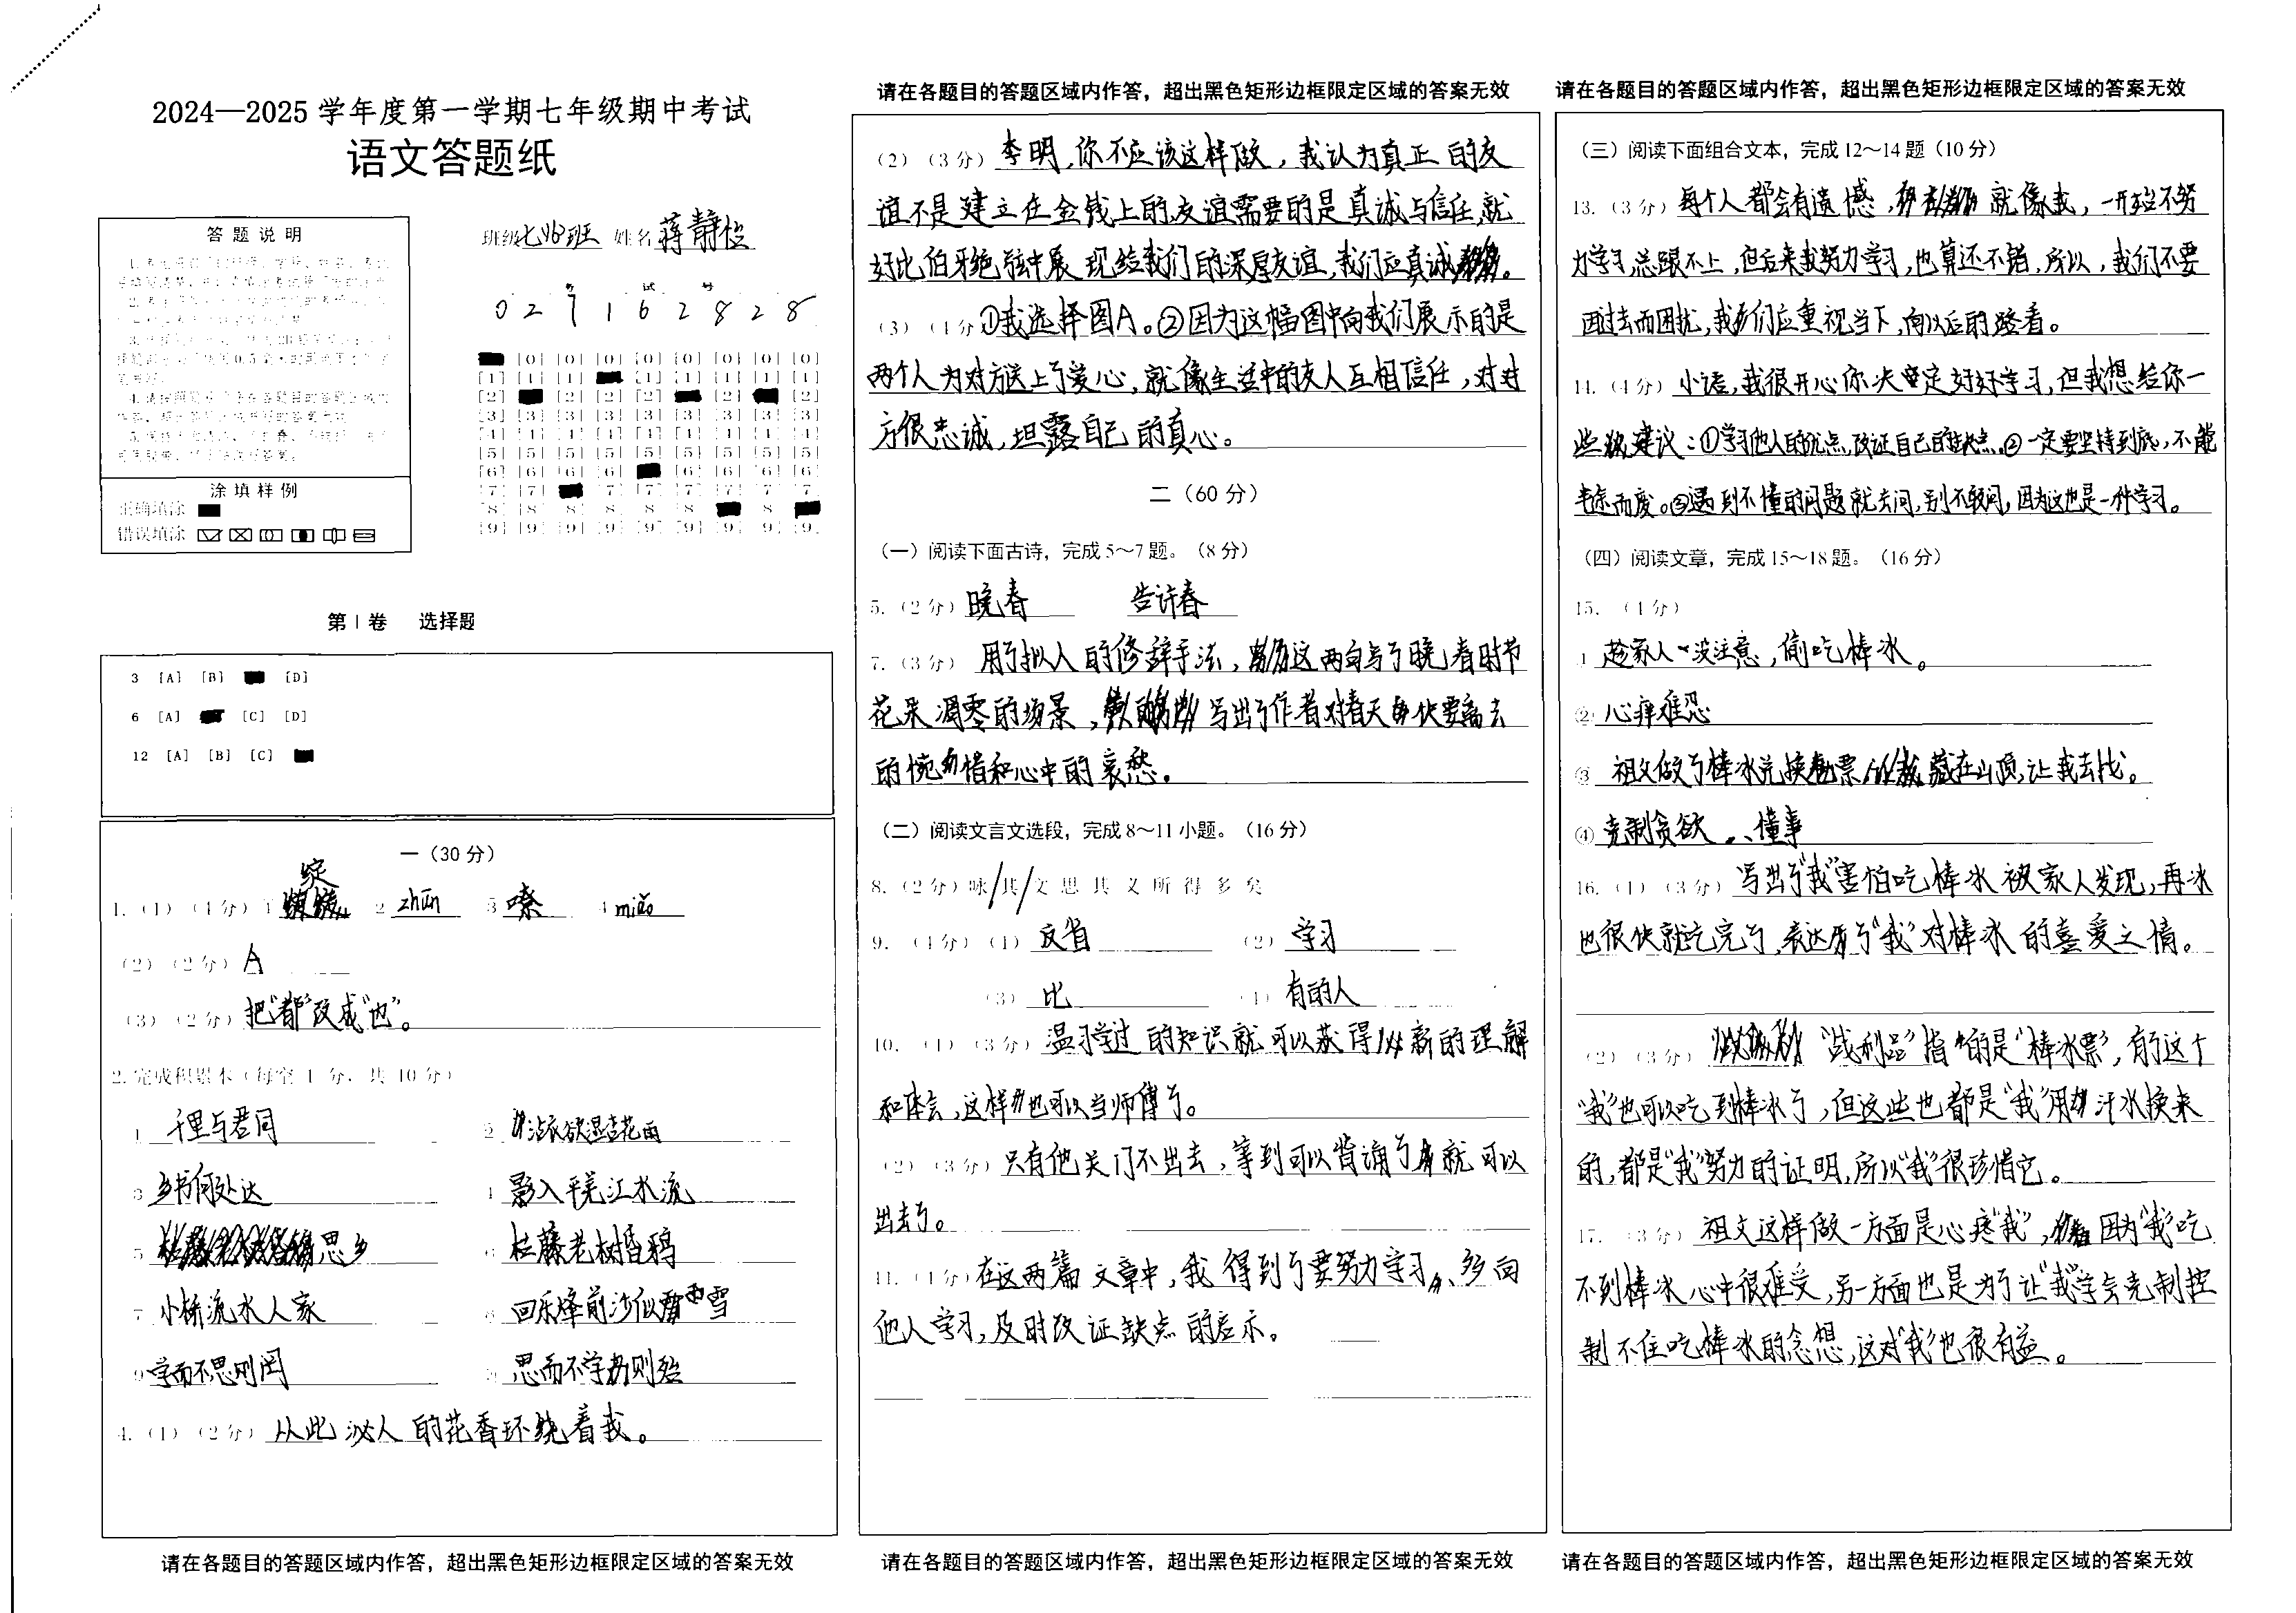 2024—2025 学年度第一学期七年级期中考试
语文答题纸
答题说明
涂填样例
正确填涂
错误填涂
班级 姓名 蒋静
考 试 号
0 2 7 1 6 2 8 2 8
[0] [0] [0] [0] [0] [0] [0] [0]
[1] [1] [1] [1] [1] [1] [1] [1]
[2] [2] [2] [2] [2] [2]
[3] [3] [3] [3] [3] [3] [3] [3] [3]
[4] [4] [4] [4] [4] [4] [4] [4] [4]
[5] [5] [5] [5] [5] [5] [5] [5] [5]
[6] [6] [6] [6] [6] [6] [6] [6]
[7] [7] [7] [7] [7] [7] [7] [7]
[8] [8] [8] [8] [8] [8] [8]
[9] [9] [9] [9] [9] [9] [9] [9] [9]
第Ⅰ卷 选择题
3 [A] [B] [D]
6 [A] [C] [D]
12 [A] [B] [C]
一（30 分）
1.（1）（4分）1 绽 2 zhūn 3 嗦 4 miǎo
（2）（2分）A
（3）（2分）把“都”改成“也”。
2.完成积累本（每空 1 分，共 10 分）
1 千里与君同 2 沾衣欲湿杏花雨
3 乡书何处达 4 影入平羌江水流
5 思乡 6 枯藤老树昏鸦
7 小桥流水人家 8 回乐烽前沙似雪
9 学而不思则罔 10 思而不学则殆
4.（1）（2分）从此沁人的花香环绕着我。
请在各题目的答题区域内作答，超出黑色矩形边框限定区域的答案无效
请在各题目的答题区域内作答，超出黑色矩形边框限定区域的答案无效
（2）（3分）李明，你不应该这样做，我认为真正的友
谊不是建立在金钱上的，友谊需要的是真诚与信任，就
好比伯牙绝弦中展现给我们的深厚友谊，我们应真诚。
（3）（4分）①我选择图A。②因为这幅图中向我们展示的是
两个人为对方送上了爱心，就像生活中的友人互相信任，对对
方很忠诚，坦露自己的真心。
二（60 分）
（一）阅读下面古诗，完成 5～7 题。（8 分）
5.（2分）晚春 告诉春
7.（3分）用了拟人的修辞手法，这两句写了晚春时节
花朵凋零的场景，写出了作者对春天快要离去
的惋惜和心中的哀愁。
（二）阅读文言文选段，完成 8～11 小题。（16 分）
8.（2分）咏/其/文思其义所得多矣
9.（4分）（1）反省 （2）学习
（3）比 （4）有的人
10.（1）（3分）温习学过的知识就可以获得新的理解
和体会，这样也可以当师傅了。
（2）（3分）只有他关门不出去，等到可以背诵了就可以
出去了。
11.（4分）在这两篇文章中，我得到了要努力学习、多向
他人学习，及时改证缺点的启示。
请在各题目的答题区域内作答，超出黑色矩形边框限定区域的答案无效
请在各题目的答题区域内作答，超出黑色矩形边框限定区域的答案无效
（三）阅读下面组合文本，完成 12～14 题（10 分）
13.（3分）每个人都会有遗憾，就像我，一开始不努
力学习，总跟不上，但后来我努力学习，也算还不错，所以，我们不要
因过去而困扰，我们应重视当下，向以后的路看。
14.（4分）小语，我很开心你决定好好学习，但我想给你一
些建议：①学习他人的优点，改证自己的缺点。②一定要坚持到底，不能
半途而废。③遇到不懂的问题就去问，别不敢问，因为这也是一种学习。
（四）阅读文章，完成 15～18 题。（16 分）
15.（4分）
① 趁家人没注意，偷吃棒冰。
② 心痒难忍
③ 祖父做了棒冰兑换票藏在山顶，让我去找。
④ 克制贪欲、懂事
16.（1）（3分）写出了“我”害怕吃棒冰被家人发现，再冰
也很快就吃完了，表达了“我”对棒冰的喜爱之情。
（2）（3分）“战利品”指的是“棒冰票”，有了这个
“我”也可以吃到棒冰了，但这些也都是“我”用汗水换来
的，都是“我”努力的证明，所以“我”很珍惜它。
17.（3分）祖父这样做一方面是心疼“我”，因为“我”吃
不到棒冰心中很难受，另一方面也是为了让“我”学会克制控
制不住吃棒冰的念想，这对“我”也很有益。
请在各题目的答题区域内作答，超出黑色矩形边框限定区域的答案无效